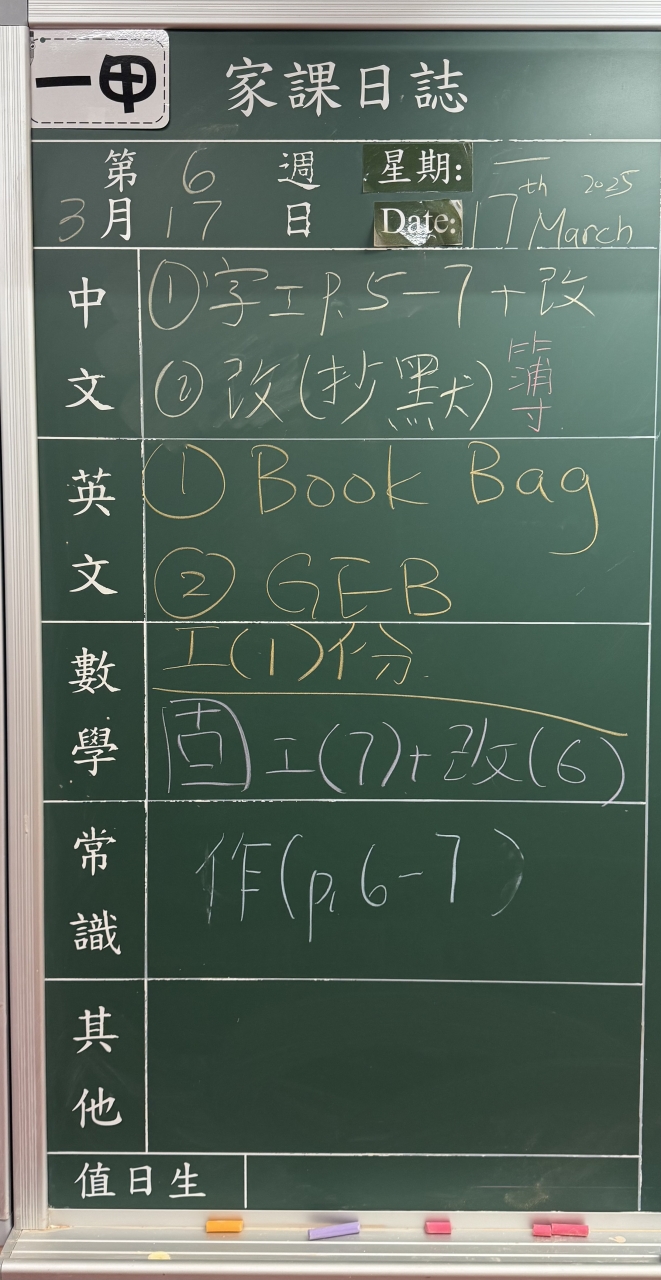 一甲
家課日誌
第 6 週 星期: 一
3月 17 日 Date: 17th March 2025
中文
①字工p.5-7+改
②改(抄默)簿
英文
① Book Bag
② GEB
數學
工(1)份
固工(7)+改(6)
常識
作(p.6-7)
其他
值日生